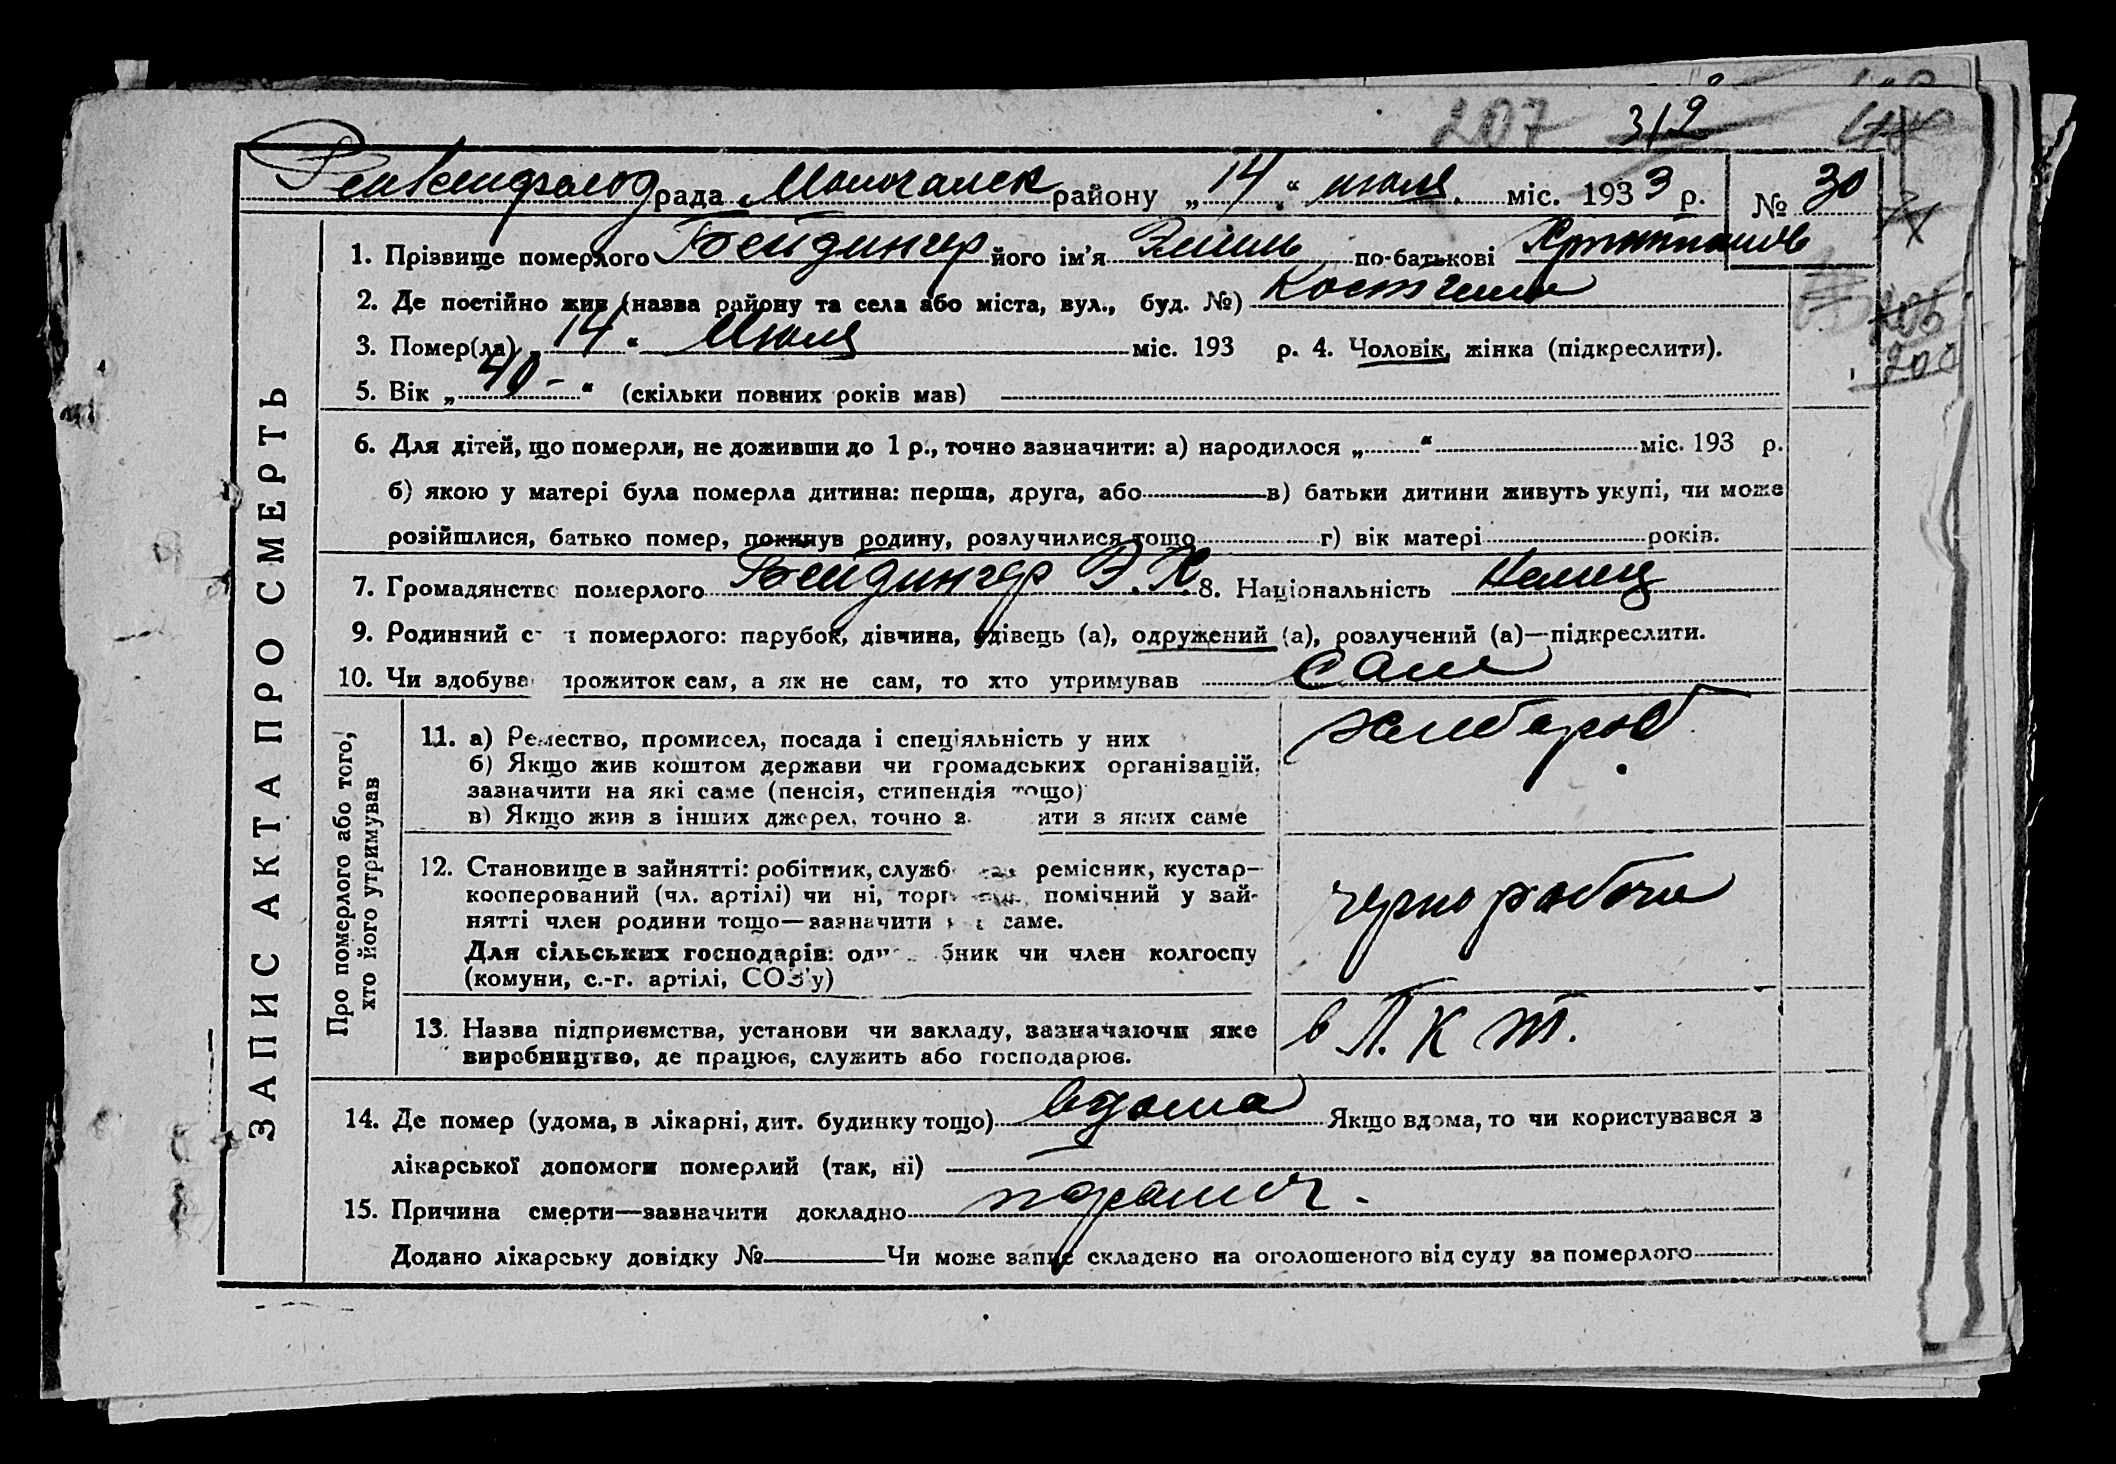 207 319
рада Молочанск району „14“ июля міс. 1933 р. № 30
ЗАПИС АКТА ПРО СМЕРТЬ
1. Прізвище померлого Бейдингер його ім'я Эмиль по-батькові
2. Де постійно жив (назва району та села або міста, вул., буд. №) Костгейм
3. Помер(ла) „14“ Июля міс. 193 р. 4. Чоловік, жінка (підкреслити).
5. Вік „40-“ (скільки повних років мав)
6. Для дітей, що померли, не доживши до 1 р., точно зазначити: а) народилося „ “ міс. 193 р.
б) якою у матері була померла дитина: перша, друга, або в) батьки дитини живуть укупі, чи може
розійшлися, батько помер, покинув родину, розлучилися тощо г) вік матері років.
7. Громадянство померлого Бейдингер Э. Х. 8. Національність Немец
9. Родинний померлого: парубок, дівчина, удівець (а), одружений (а), розлучений (а)—підкреслити.
10. Чи здобува прожиток сам, а як не сам, то хто утримував сам
Про померлого або того,
хто його утримував
11. а) Ремество, промисел, посада і спеціяльність у них хлебороб
б) Якщо жив коштом держави чи громадських організацій,
зазначити на які саме (пенсія, стипендія тощо)
в) Якщо жив з інших джерел, точно з ити з яких саме
12. Становище в зайнятті: робітник, служб ремісник, кустар-
кооперований (чл. артілі) чи ні, торг помічний у зай-
нятті член родини тощо—зазначити саме. чернорабочи
Для сільських господарів: од бник чи член колгоспу
(комуни, с.-г. артілі, СОЗ'у)
13. Назва підприємства, установи чи закладу, зазначаючи яке в П.К.Т.
виробництво, де працює, служить або господарює.
14. Де помер (удома, в лікарні, дит. будинку тощо) вдома Якщо вдома, то чи користувався з
лікарської допомоги померлий (так, ні)
15. Причина смерти—зазначити докладно
Додано лікарську довідку № Чи може запис складено на оголошеного від суду за померлого